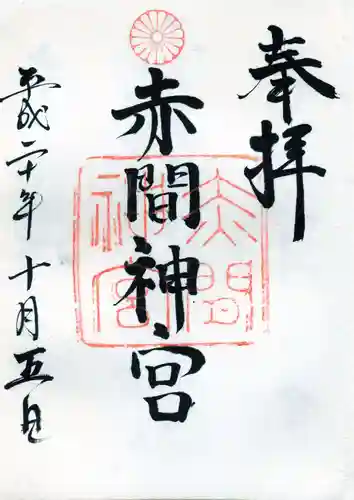 奉拝
赤間神宮
赤間
神宮
平成二十年十月五日